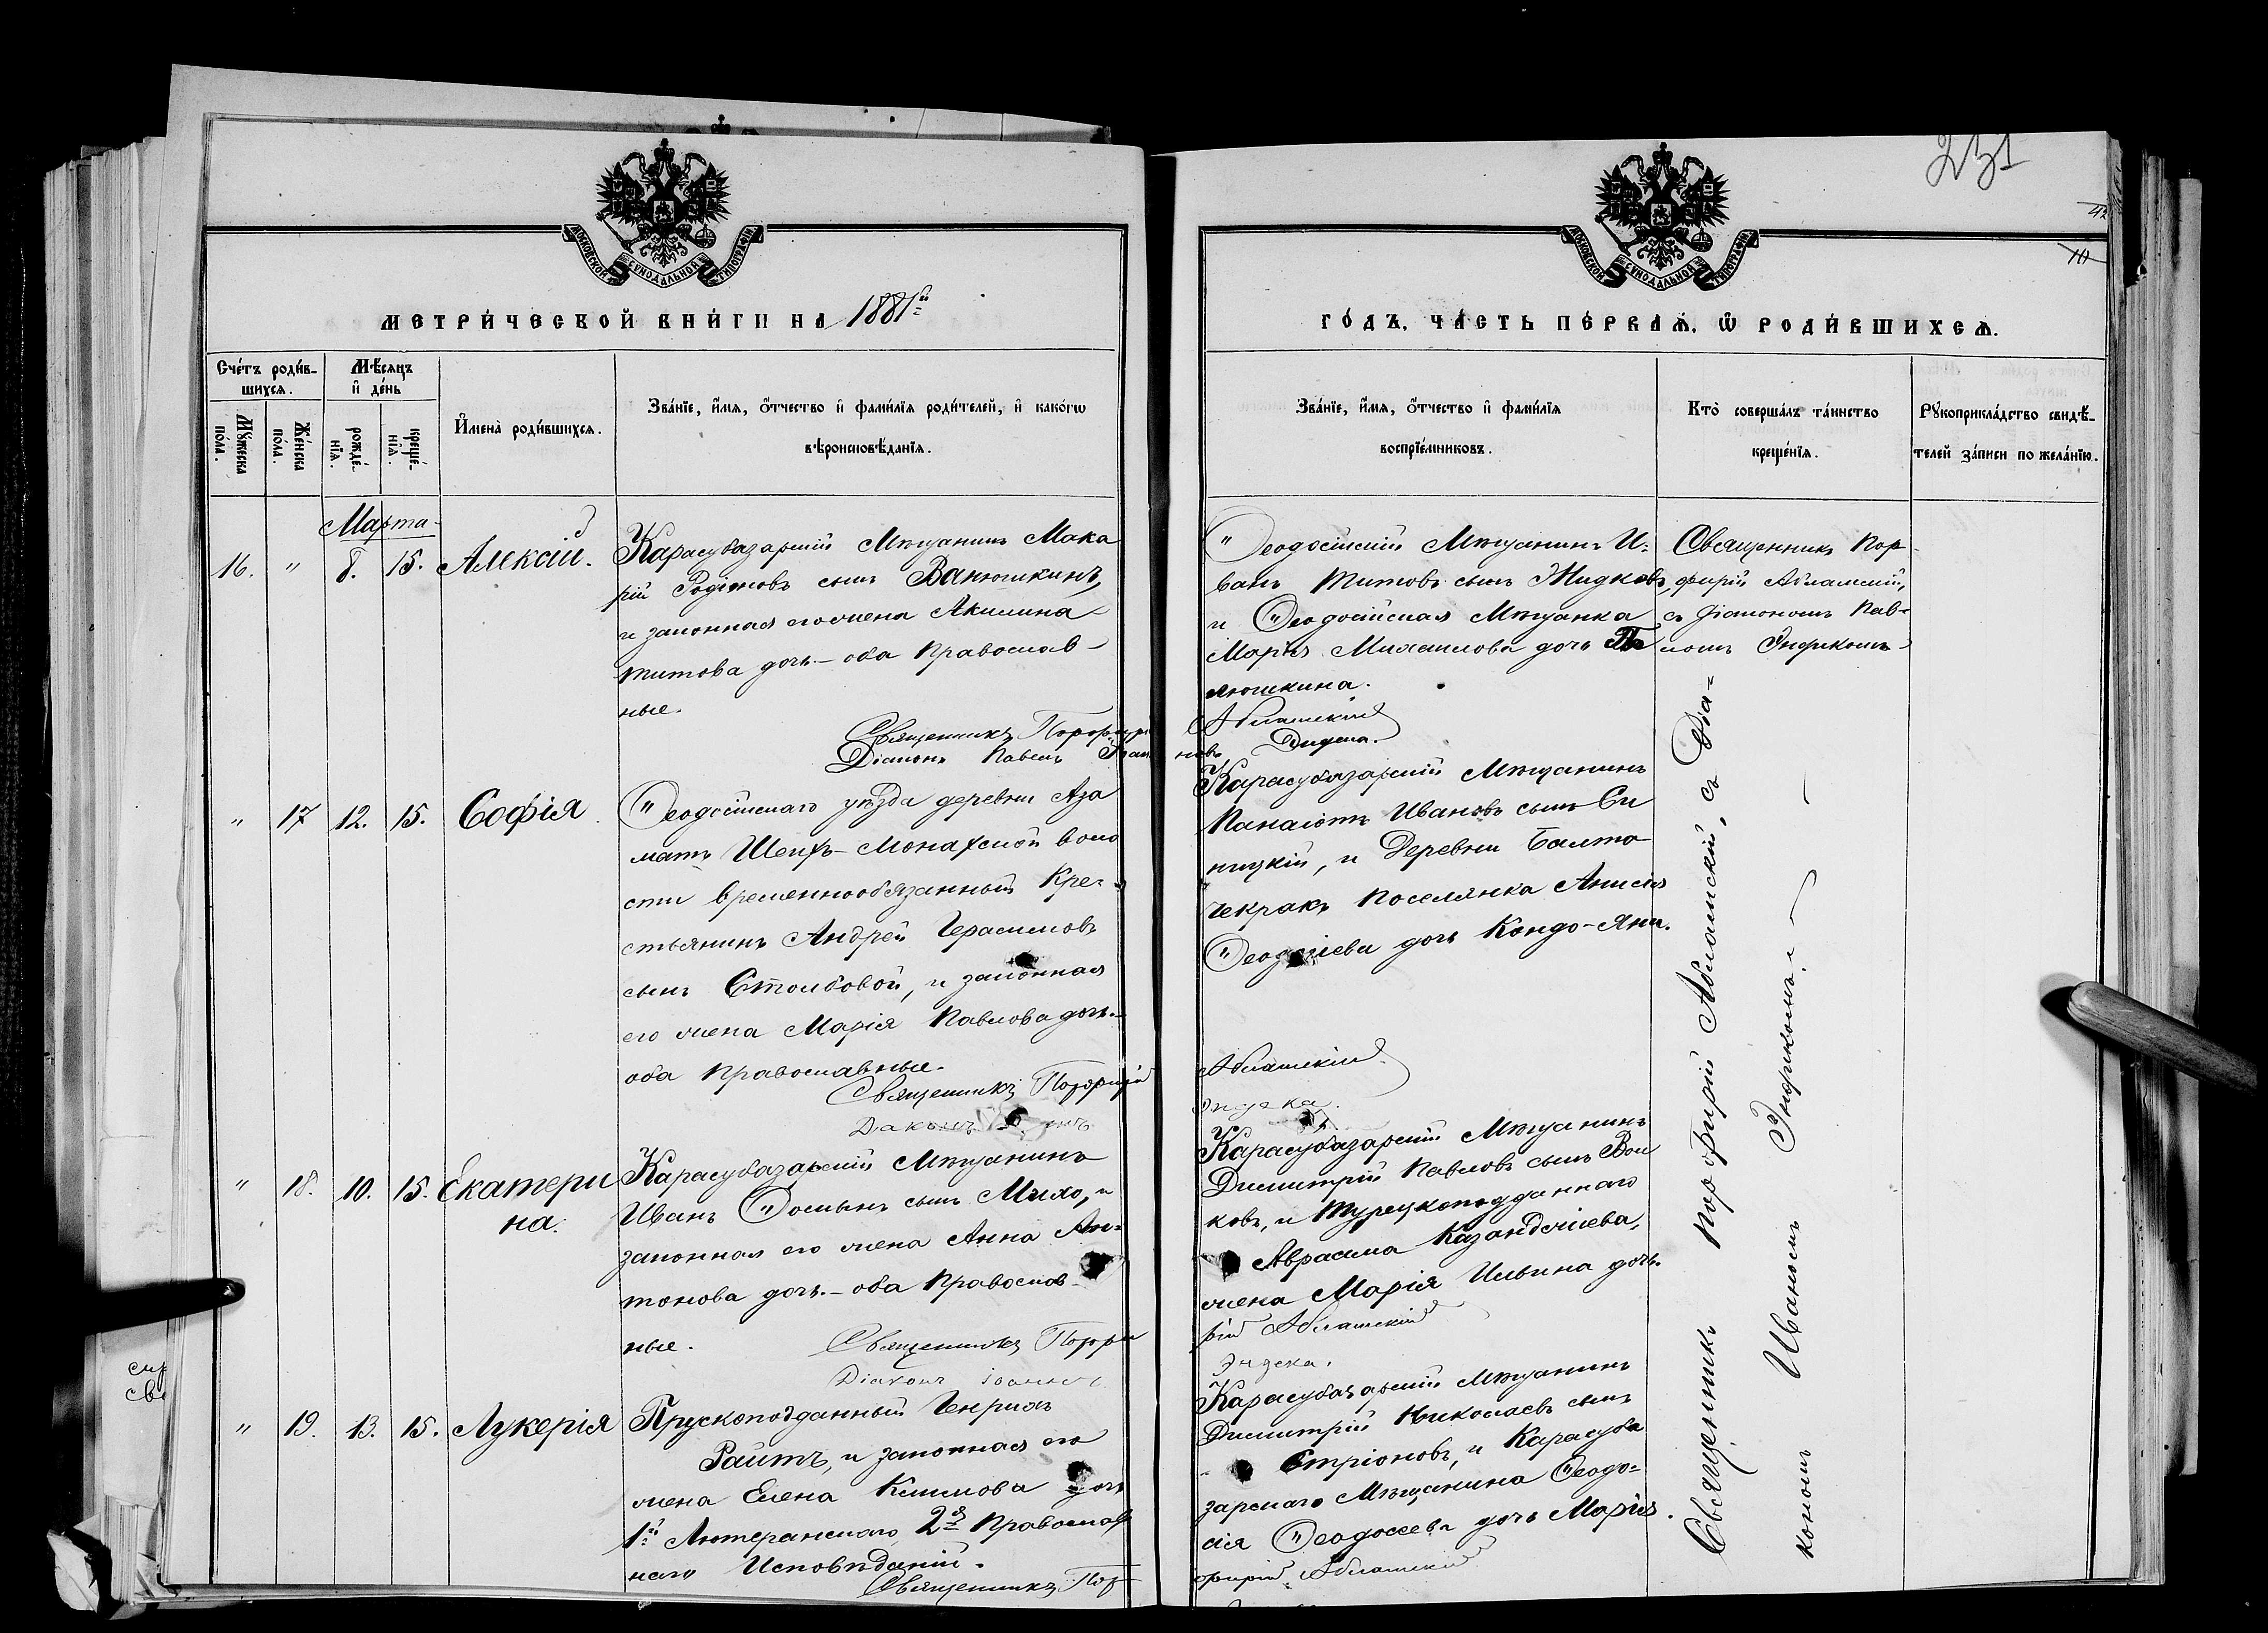 231
42
10
МОСКОВСКОЙ СѴНОДАЛЬНОЙ ТИПОГРАФІИ
МОСКОВСКОЙ СѴНОДАЛЬНОЙ ТИПОГРАФІИ
МЕТРИ́ЧЕСКОЙ КНИ́ГИ НА 1881й
ГО́ДЪ, ЧА́СТЬ ПЕ́РВАѦ, Ѡ РОДИ́ВШИХСѦ.
Сче́тъ роди́в-
шихсѧ.
Мꙋжеска по́ла.
Же́нска по́ла.
Мѣ́сѧцъ и҆ де́нь
рожде́-
нїѧ.
креще́-
нїѧ.
И҆мена̀ роди́вшихсѧ.
Зва́нїе, и҆́мѧ, ѻ҆́тчество и҆ фами́лїѧ роди́телей, и҆ како́гѡ
вѣроисповѣ́данїѧ.
Зва́нїе, и҆́мѧ, ѻ҆́тчество и҆ фами́лїѧ
воспрїе́мниковъ.
Кто̀ соверша́лъ та́инство
креще́нїѧ.
Рꙋкоприкла́дство свидѣ́-
телей за́писи по жела́нїю.
Марта
16. " 8. 15. Алексій.
Карасубазарскій Мѣщанинъ Мака
рій Родіоновъ сынъ Ванюшкинъ,
и законная его жена Акилина
Титова дочь - оба Православ-
ные.
Священникъ Порфири
Діаконъ Павелъ
Ѳеодосійскій Мѣщанинъ И-
ванъ Титовъ сынъ Жидковъ,
и Ѳеодосійская Мѣщанка
Марія Михаилова дочь
люшкина.
Абламскій
Священникъ Пор-
фирій Абламскій,
съ Діакономъ Пав-
ломъ
" 17 12. 15. София
Ѳеодосійскаго уѣзда деревни Аза
матъ Шейхъ-Монахской воло
сти временнообязанный Кре-
стьянинъ Андрей Герасимовъ
сынъ Столбовой, и законная
его жена Марія Павлова дочь.-
оба Православные.
Священникъ Порфирій
Карасубазарскій Мѣщанинъ
Панаіотъ Ивановъ сынъ Си
ницкій, и Деревни Балта
Чекракъ Поселянка Анисія
Ѳеодосіева дочь Кондо-Яни.
Абламскій
" 18. 10. 15. Екатери
на.
Карасубазарскій Мѣщанинъ
Иванъ Ѳоминъ сынъ Михо, и
законная его жена Анна Ан-
тонова дочь.- оба Православ-
ные.
Священникъ Порфи
Діаконъ Іоаннъ
Карасубазарскій Мѣщанинъ
Димитрій Павловъ сынъ Вол
ковъ, и Турецкоподданнаго
Аврама Казанджіева,
жена Марія Ильина дочь.
рій Абламскій
" 19. 13. 15. Лукерія
Прускоподданный Генрихъ
Райтъ, и законная его
жена Елена Климова дочь
1й Лютеранскаго, 2я Православ
наго Исповѣданій.
Священникъ Пор
Карасубазарскій Мѣщанинъ
Димитрій Николаевъ сынъ
Стріоновъ, и Карасуба
зарскаго Мѣщанина Ѳеодо-
сія Ѳеодосеева дочь Марія.
фирій Абламскій
Священникъ Порфирій Абламскій, съ Діа-
кономъ Иваномъ